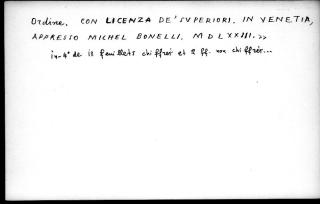 Ordine. CON LICENZA DE' SUPERIORI. IN VENETIA,
APPRESSO MICHEL BONELLI. MDLXXIII.>>
in-4° de 12 feuillets chiffrés et 2 ff. non chiffrés...